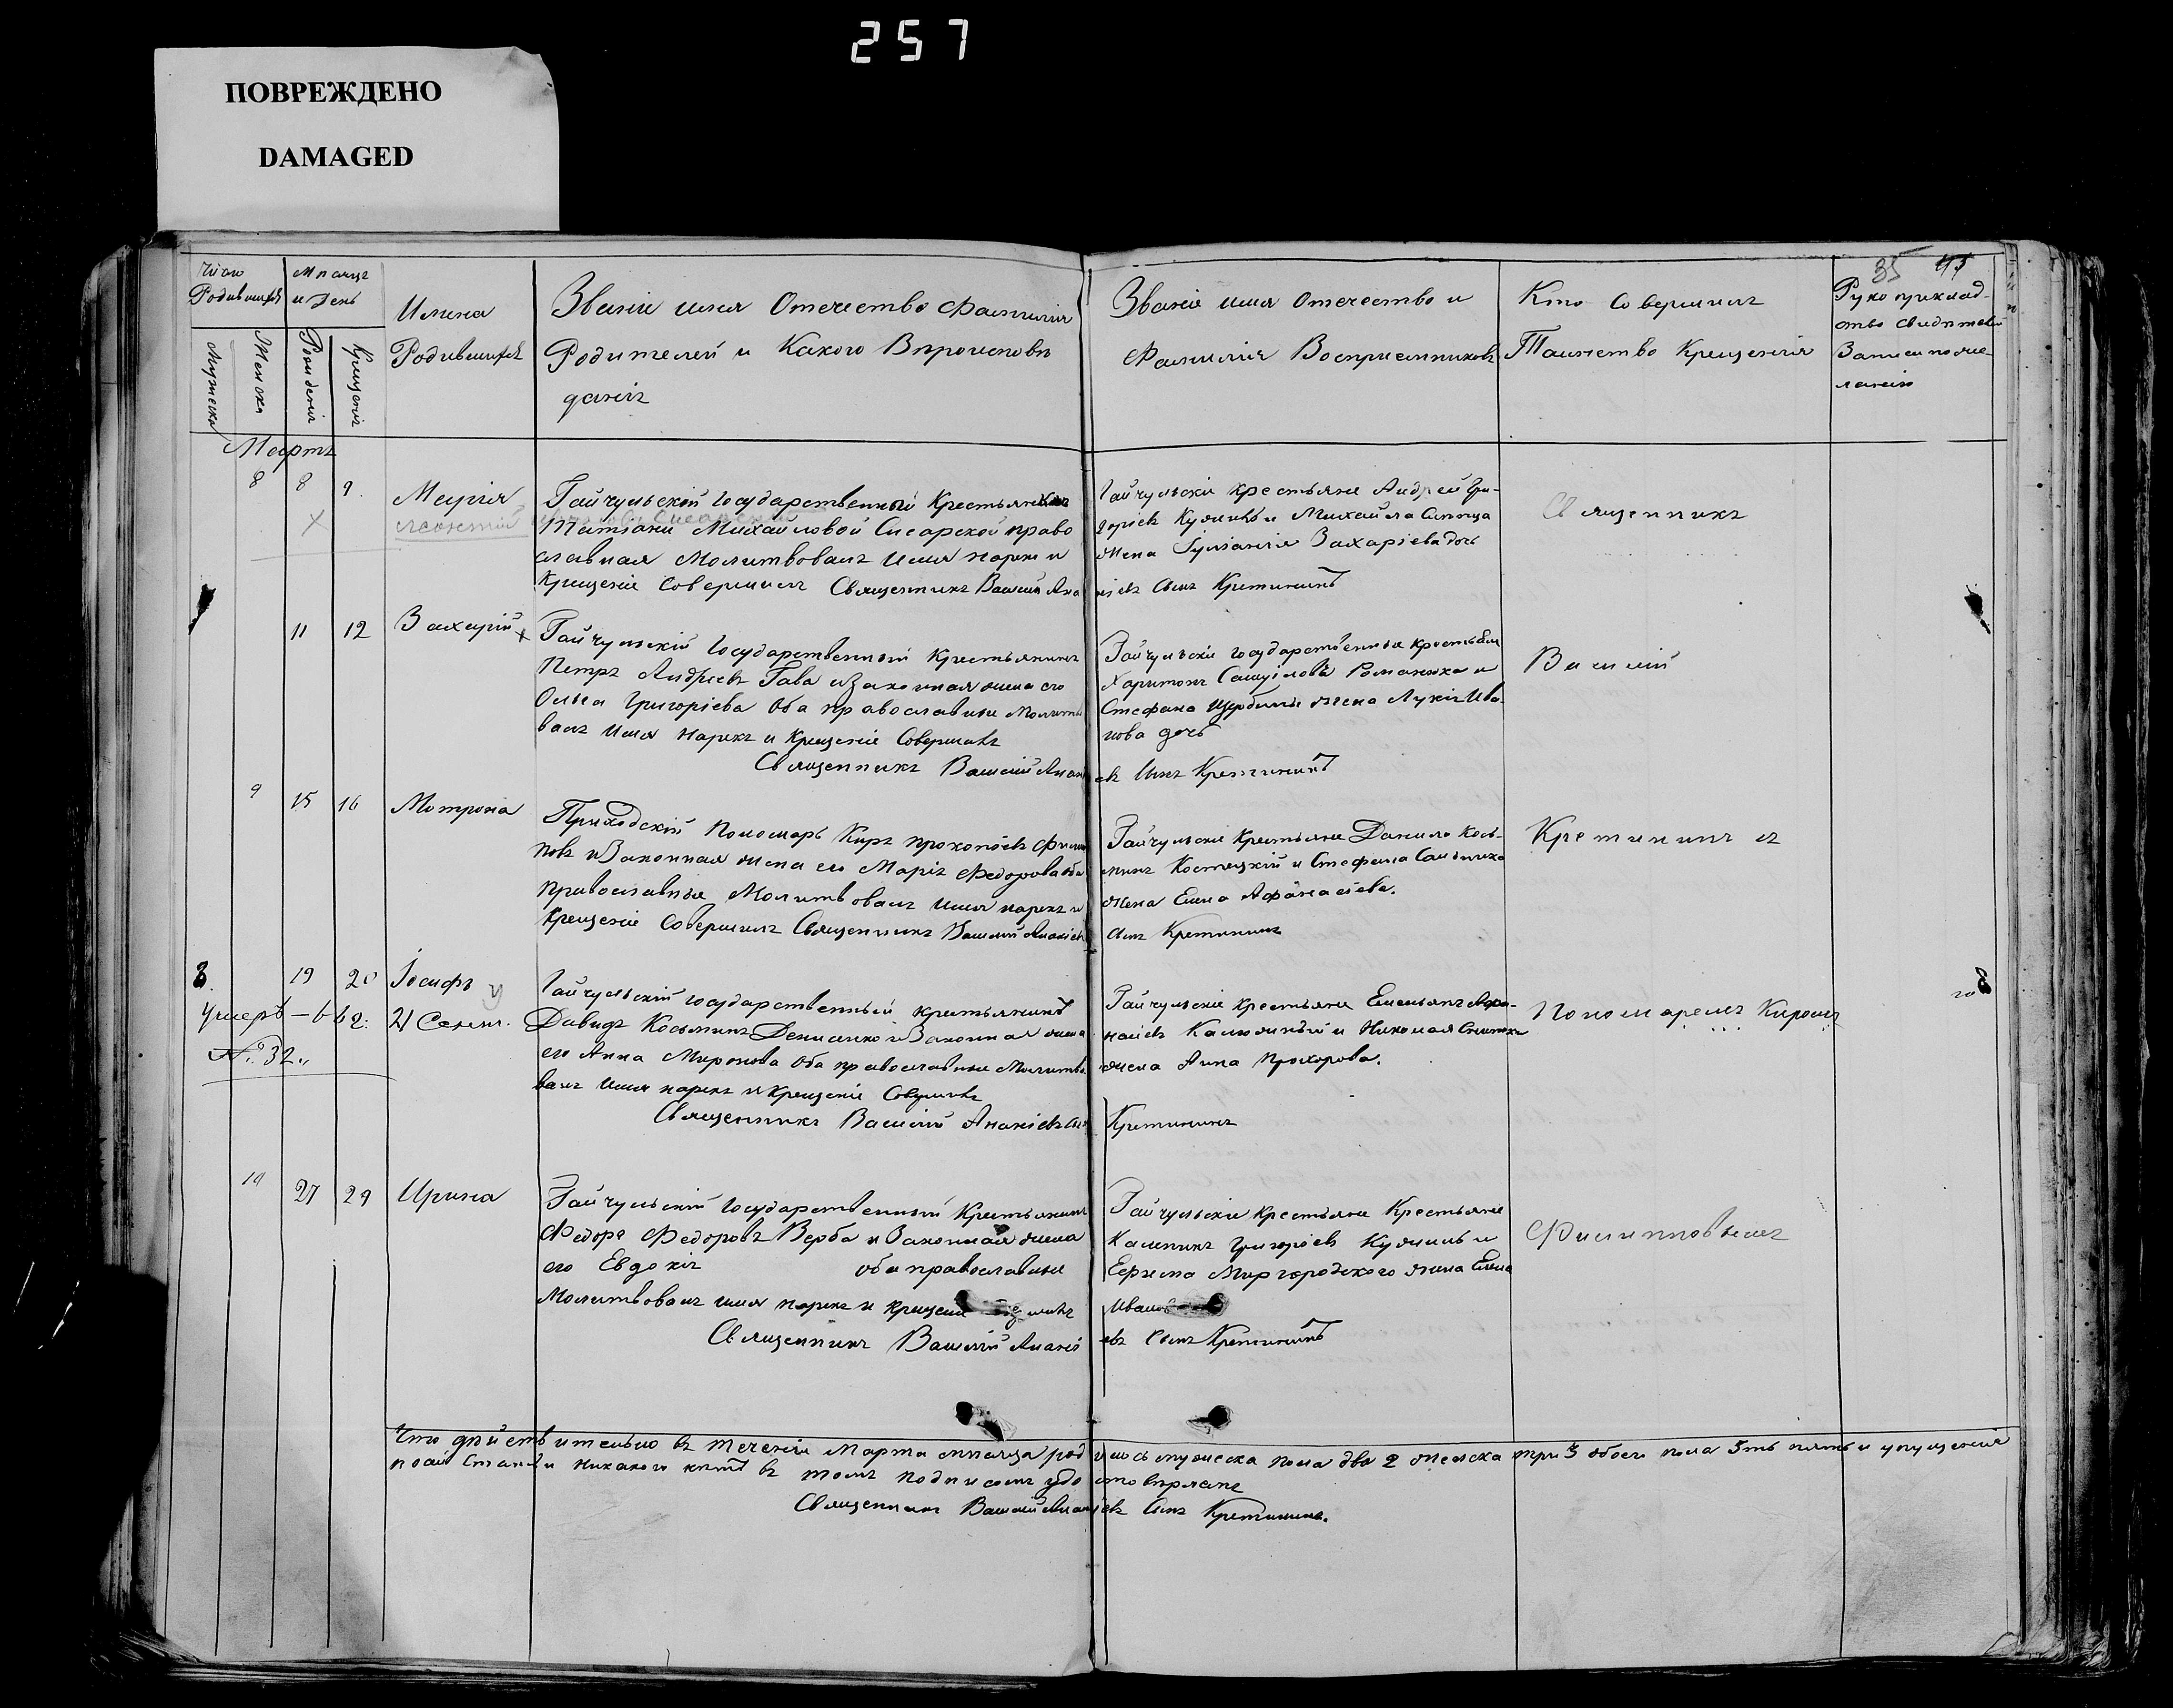 257
ПОВРЕЖДЕНО
DAMAGED
35 45
Число Родившихъ
Мѣсяцъ и День
Мужеска
Женска
Рожденія
Крещенія
Имена
Родившихъ
Званіе имя Отечество Фамилія
Родителей и Какого Вѣроисповѣ
данія
Званіе имя Отечество и
Фамилія Воспріемниковъ
Кто Совершилъ
Таинство Крещенія
Руко приклад-
ство Свидѣтелей
Записи по же-
ланію
Мартъ
8 8 9. Марія
Гайчульской государственный Крестьянки
Татіаны Михайловой Сисарской право
славная Молитвовалъ Имя нарекъ и
Крещеніе Совершилъ Священникъ Василій Ана
Гайчульскіе крестьяне Андрей Гри-
горіевъ Кужиль и Михайла Синица
жена Іуліанія Захаріева дочь
ніевъ Сынъ Кретининъ
Священникъ
11 12 Захарій
Гайчульскій Государственный Крестьянинъ
Петръ Андреевъ Гава и Законная жена его
Ольга Григоріева Оба православные Молитво
валъ Имя Нарекъ и Крещеніе Совершилъ
Священникъ Василій Анані
Гайчульскіе государственные крестьяне
Харитонъ Самуиловъ Романюха и
Стефана Щербины жена Лукія Ива-
нова дочь
евъ Сынъ Кретининъ
Василій
9 15 16 Мотрона
Приходскій Пономарь Киръ Прокопіевъ Филип
повъ и Законная жена его Марія Федорова оба
Православные Молитвовалъ Имя нарекъ и
Крещеніе Совершилъ Священникъ Василій Ананіевъ
Гайчульскіе Крестьяне Данило Кось-
минъ Костецкій и Стефана Сальника
жена Елена Афанасіева.
Сынъ Кретининъ
Кретининъ съ
8. 19 20 Іосифъ
Умеръ
21 Сент.
№ 32.
Гайчульскій государственный крестьянинъ
Давидъ Косьминъ Денисенко и Законная жена
его Анна Миронова Оба православные Молитво
валъ Имя нарекъ и Крещеніе Совершилъ
Священникъ Василій Ананіевъ Сынъ
Гайчульскіе крестьяне Емельянъ Афа-
насіевъ Калюжный и Николая
жена Анна Прохорова.
Кретининъ
Пономаремъ Киромъ
10 27 29 Ирина
Гайчульскій Государственный Крестьянинъ
Федоръ Федоровъ Верба и Законная жена
его Евдокія оба православные
Молитвовалъ имя нарекъ и Крещеніе
Священникъ Василій Анані
Гайчульскіе Крестьяне Крестьяне
Калиникъ Григоріевъ Кужиль и
Ефима Миргородского жена Елена
Иванов
евъ Сынъ Кретининъ
Филипповымъ
Что дѣйствительно въ теченіи Марта мѣсяца родилось мужеска пола два 2 женска три 3 обоего пола 5ть пять и упущенія
по сей Статьи никакого нѣтъ въ томъ подписомъ удостовѣряемъ
Священникъ Василій Ананіевъ Сынъ Кретининъ.